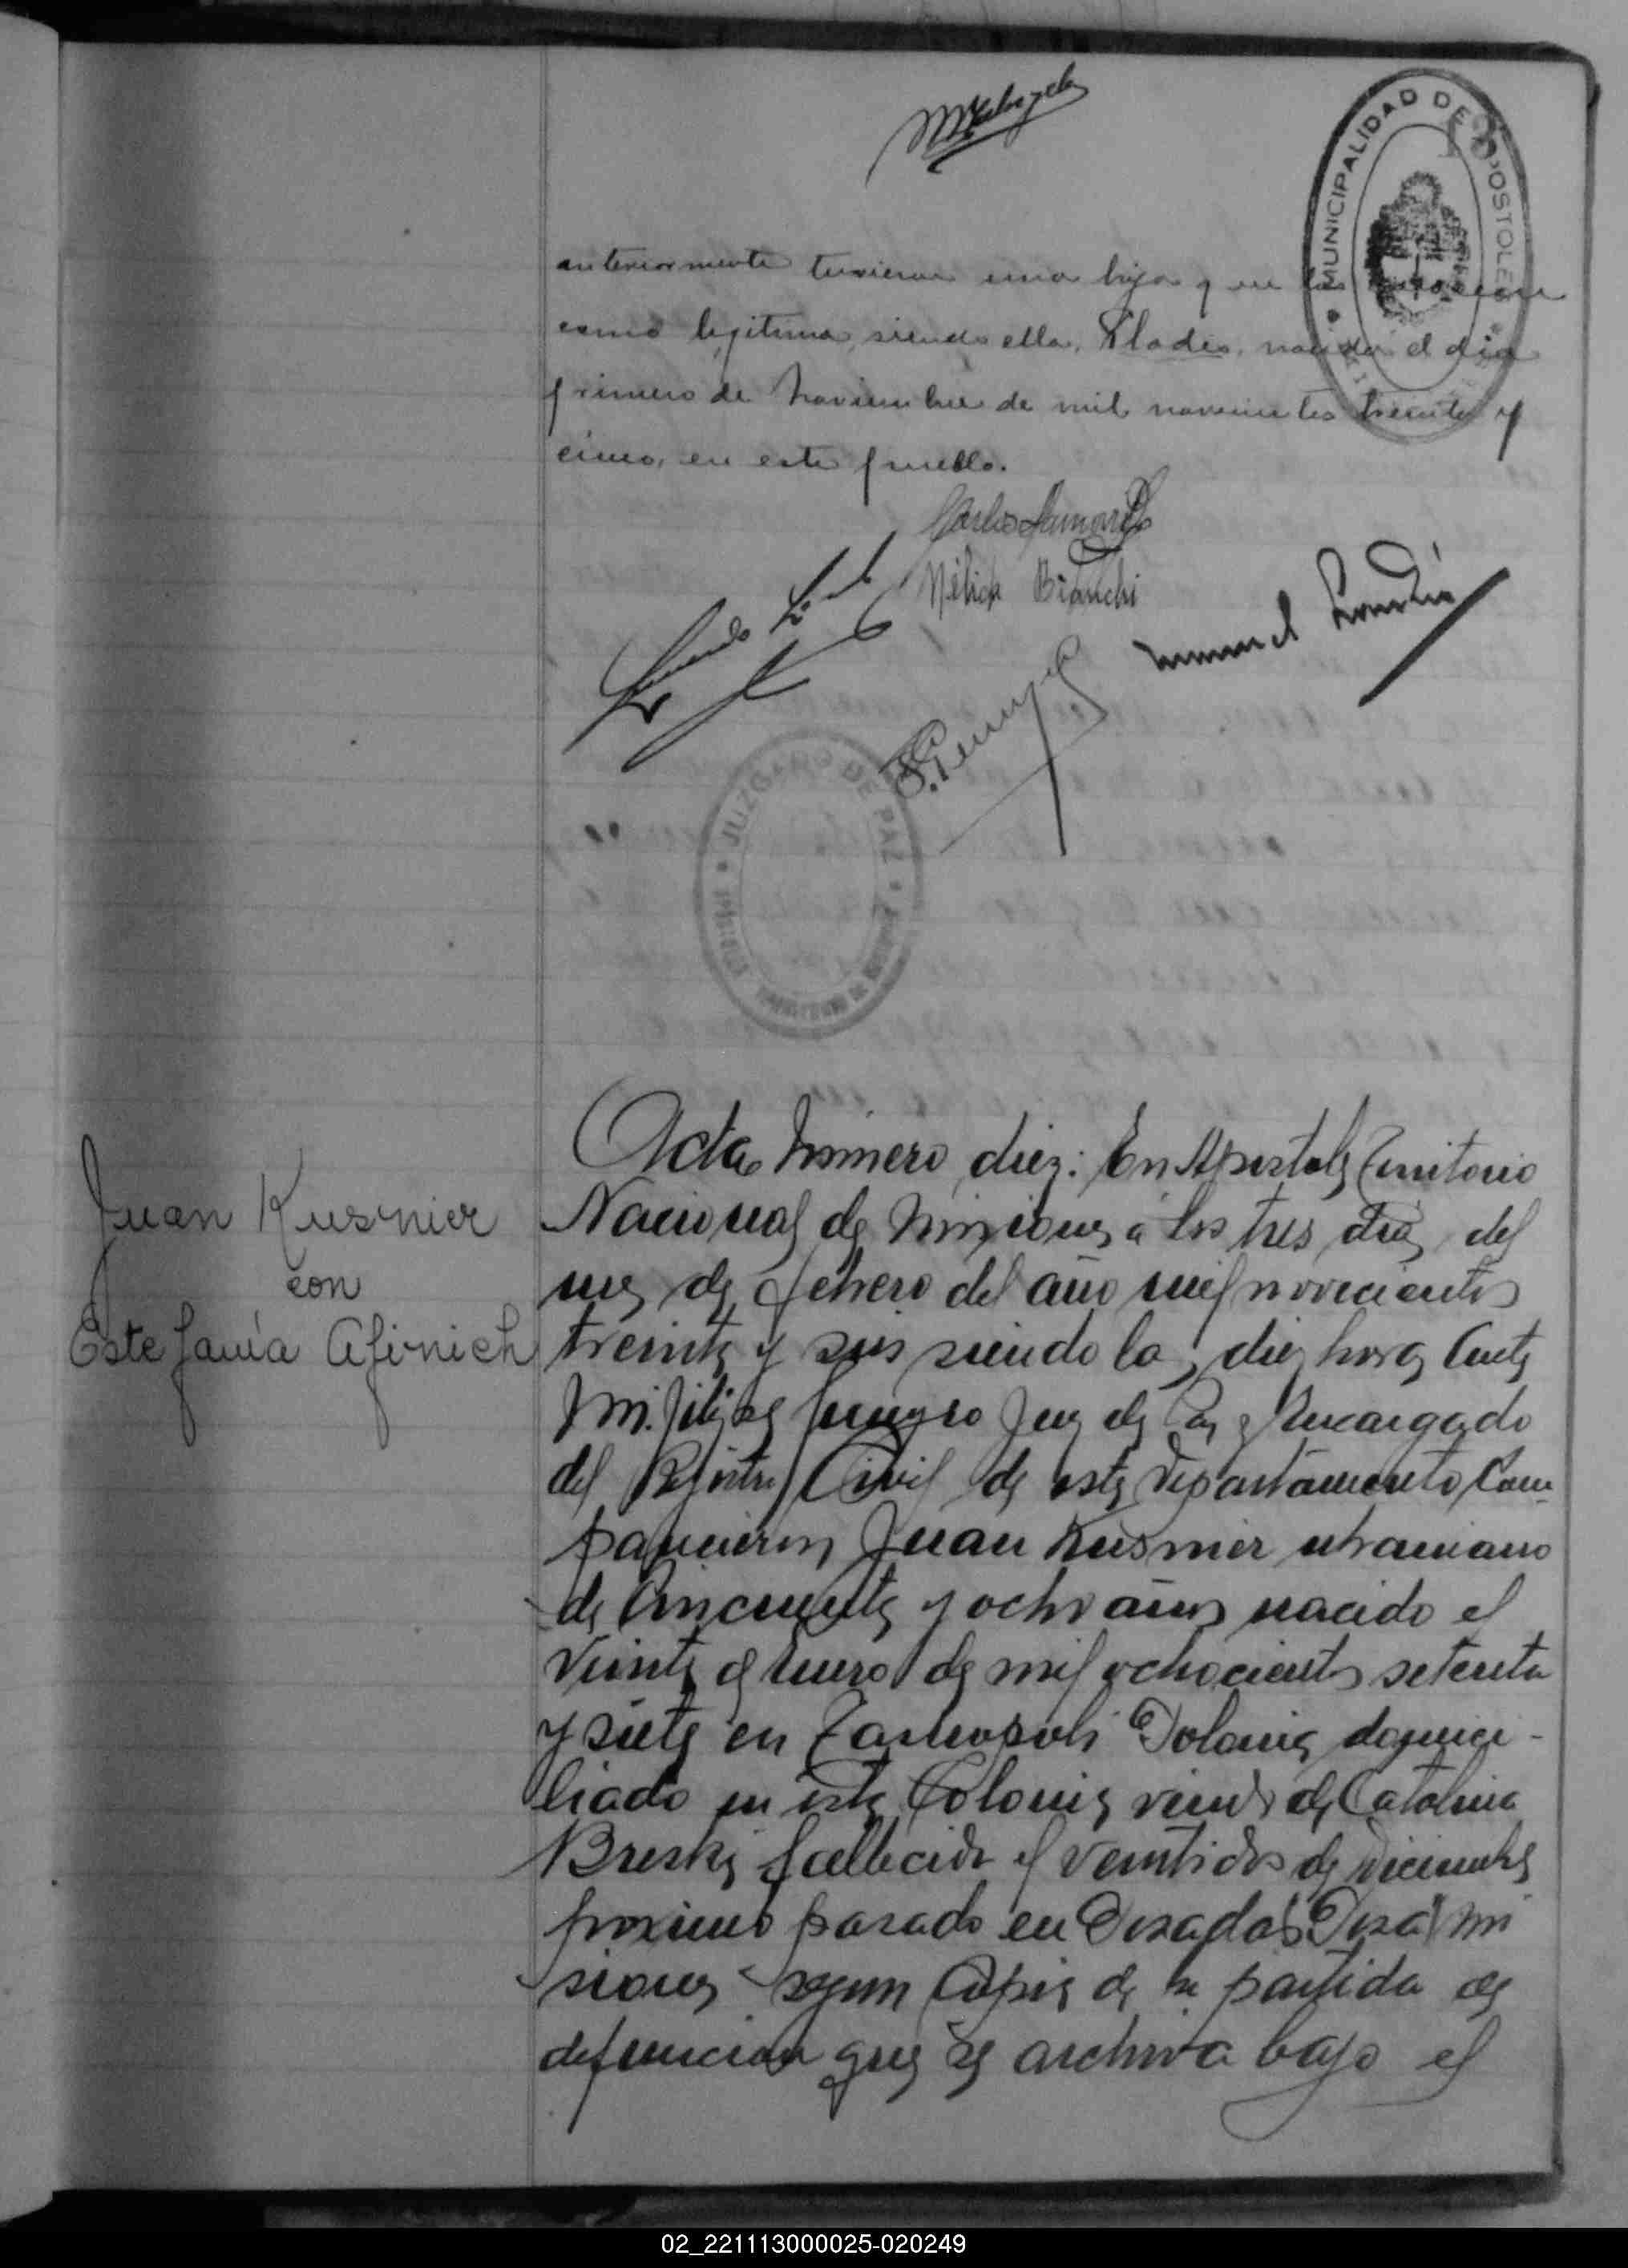 18
MUNICIPALIDAD DE APOSTOLES
anteriormente tuvieron una hija que la reconocen
como legitima, siendo ella, Gladis, nacida el dia
primero de Noviembre de mil novecientos treinta y
cinco, en este pueblo.
Nélida Bianchi
JUZGADO DE PAZ
Acta Número diez: En Apostoles Territorio
Nacional de Misiones á los tres dias del
mes de febrero del año mil novecientos
treinta y seis siendo las diez horas Ante
Mi. Juez de Paz y Encargado
del Registro Civil de este Departamento Com-
parecieron Juan Kusnier ukraniano
de Cincuenta y ocho años nacido el
veinte de Enero de mil ochocientos setenta
y siete en Tarnopoli Polonia domici-
liado en esta Colonia viudo de Catalina
Breski fallecida el veintidos de Diciembre
proximo pasado en Posadas Mi
siones segun Copia de su partida de
defuncion que se archiva bajo el
Juan Kusnier
con
Estefanía Afinich
02_221113000025-020249